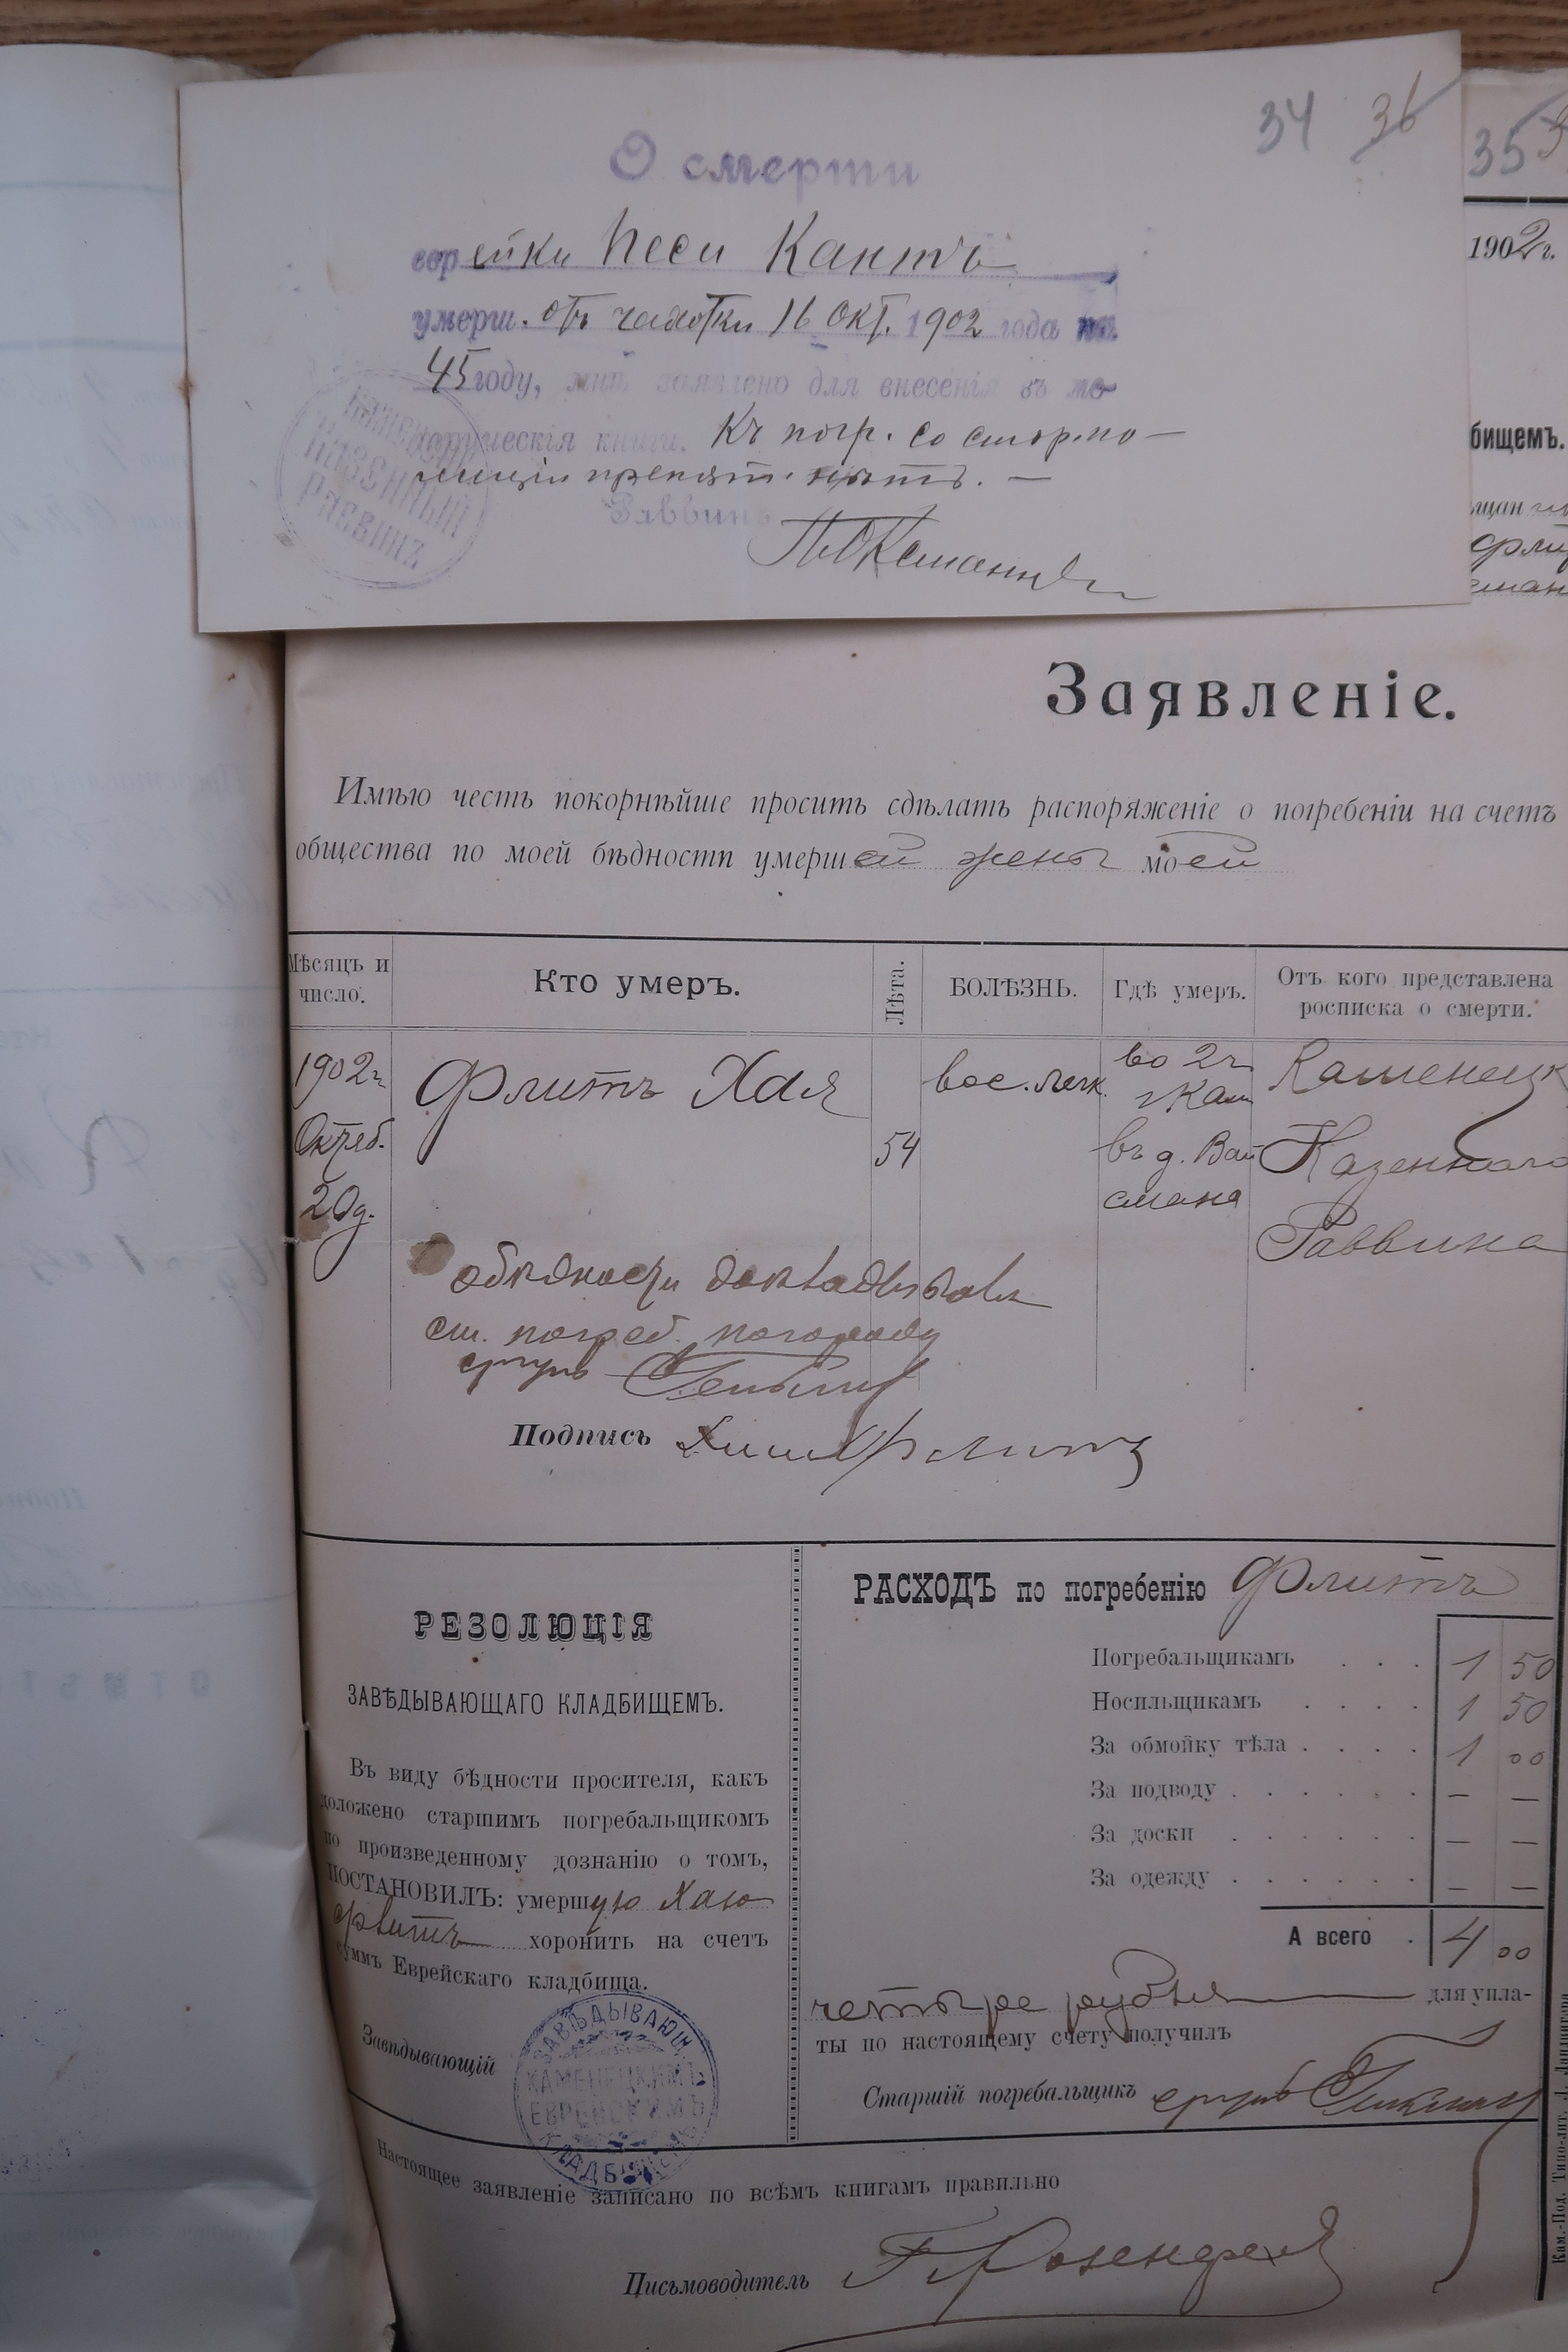 34 36
О смерти
еврейки Песи Кантъ
умерш. отъ чахотки 16 Окт. 1902 года на
45 году, мнѣ заявлено для внесенія въ ме-
трическія книги. Къ погр. со стор. по-
лиціи препят. нѣтъ. —
Раввинъ
КАЗЕННЫЙ
РАВВИНЪ
35
1902 г.
бищемъ.
щан
Заявленіе.
Имѣю честь покорнѣйше просить сдѣлать распоряженіе о погребеніи на счетъ
общества по моей бѣдности умершей жены моей
Мѣсяцъ и число.
Кто умеръ.
Лѣта.
БОЛѢЗНЬ.
Гдѣ умеръ.
Отъ кого представлена росписка о смерти.
1902 г.
Октяб.
20 д.
Флитъ Хая
54
вос. легк.
во 2 ч.
г Кам
въ д. Вай
смана
Каменецк
Казеннаго
Раввина
о бѣдности
ст. погреб.
Подпись Флитъ
РЕЗОЛЮЦІЯ
ЗАВѢДЫВАЮЩАГО КЛАДБИЩЕМЪ.
Въ виду бѣдности просителя, какъ
доложено старшимъ погребальщикомъ
по произведенному дознанію о томъ,
ПОСТАНОВИЛЪ: умершую Хаю
Флитъ хоронить на счетъ
суммъ Еврейскаго кладбища.
Завѣдывающій
ЗАВѢДЫВАЮЩ.
КАМЕНЕЦКИМЪ
ЕВРЕЙСКИМЪ
КЛАДБИЩ
РАСХОДЪ по погребенію Флитъ
Погребальщикамъ . . . 1 50
Носильщикамъ . . . . 1 50
За обмойку тѣла . . . . 1 00
За подводу . . . . . . — —
За доски . . . . . . — —
За одежду . . . . . . — —
А всего . 4 00
четыре рубля для упла-
ты по настоящему счету получилъ
Старшій погребальщикъ
Настоящее заявленіе записано по всѣмъ книгамъ правильно
Письмоводитель Г. Розенфельд
Кам.-Под. Типо-лит.